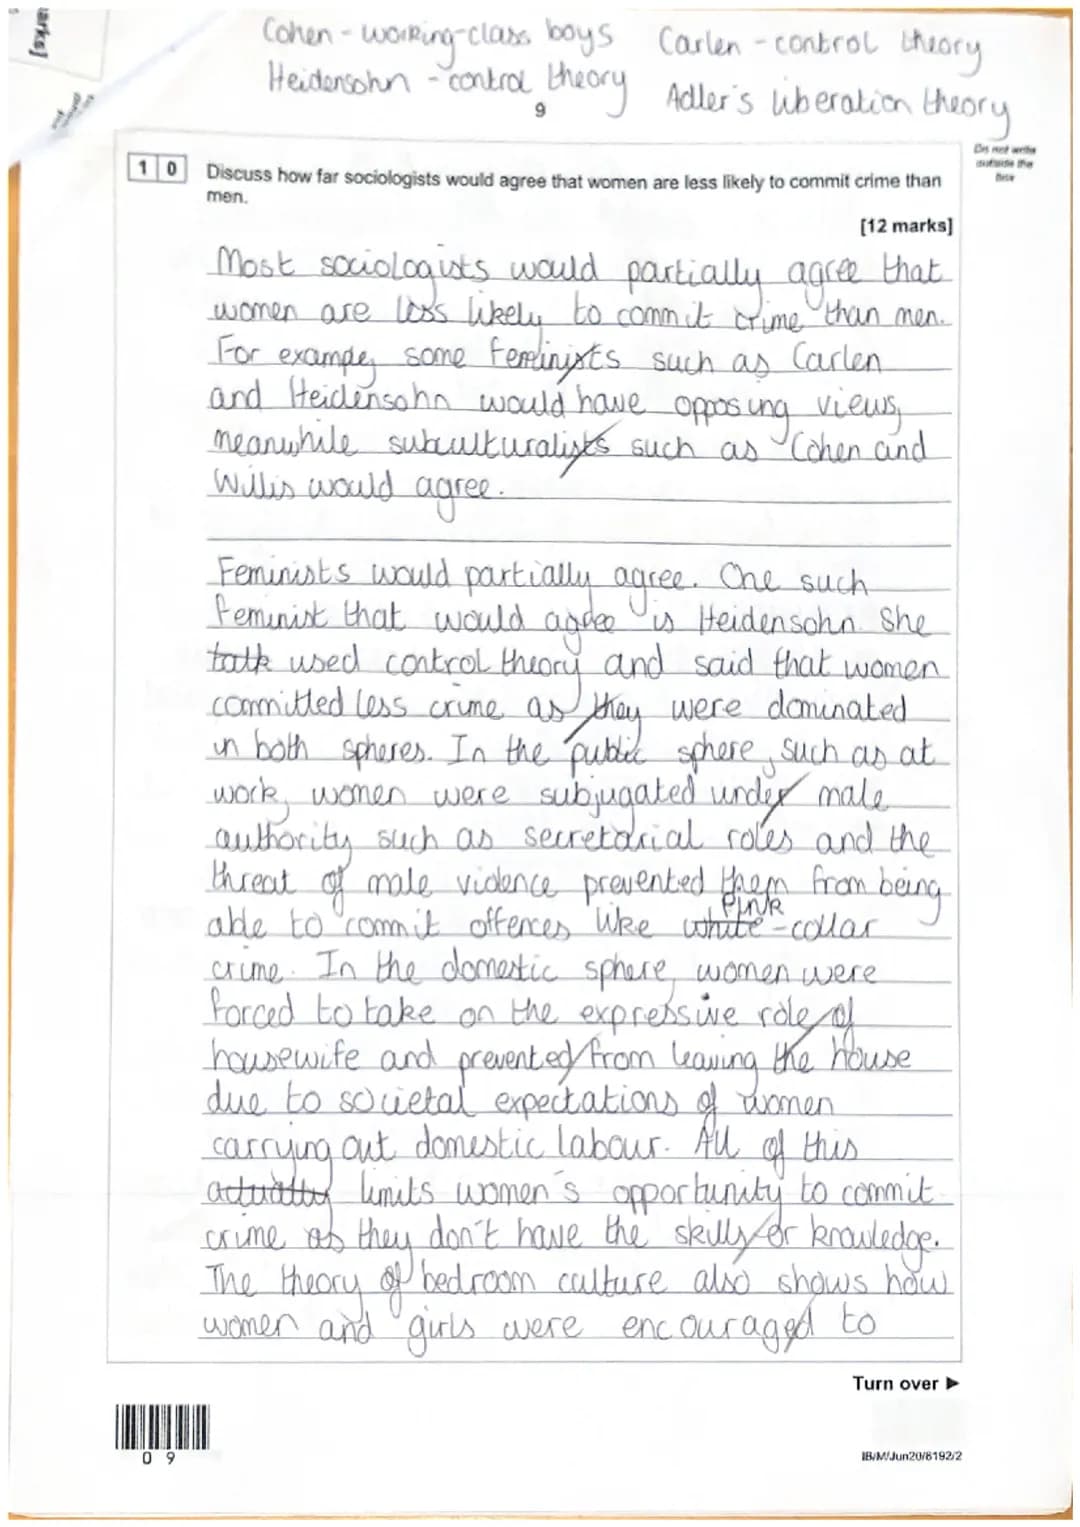 arks]
Cohen - working-class boys
Carlen - control theory
Heidensohn - control theory
Adler's liberation theory
9
Do not write
outside the
box
1 0
Discuss how far sociologists would agree that women are less likely to commit crime than
men.
[12 marks]
Most sociologists would partially agree that
women are less likely to commit crime than men.
For exampe, some feminists such as Carlen
and Heidensohn would have opposing views,
meanwhile subculturalists such as Cohen and
Willis would agree.
Feminists would partially agree. One such
feminist that would agree is Heidensohn. She
talk used control theory and said that women
committed less crime as they were dominated
in both spheres. In the public sphere, such as at
work, women were subjugated under male
authority such as secretarial roles and the
threat of male violence prevented them from being
pink
able to commit offences like white-collar
crime. In the domestic sphere, women were
forced to take on the expressive role of
housewife and prevented from leaving the house
due to societal expectations of women
carrying out domestic labour. All of this
actually limits women's opportunity to commit
crime as they don't have the skills or knowledge.
The theory of bedroom culture also shows how
women and girls were encouraged to
Turn over ►
0 9
IB/M/Jun20/8192/2